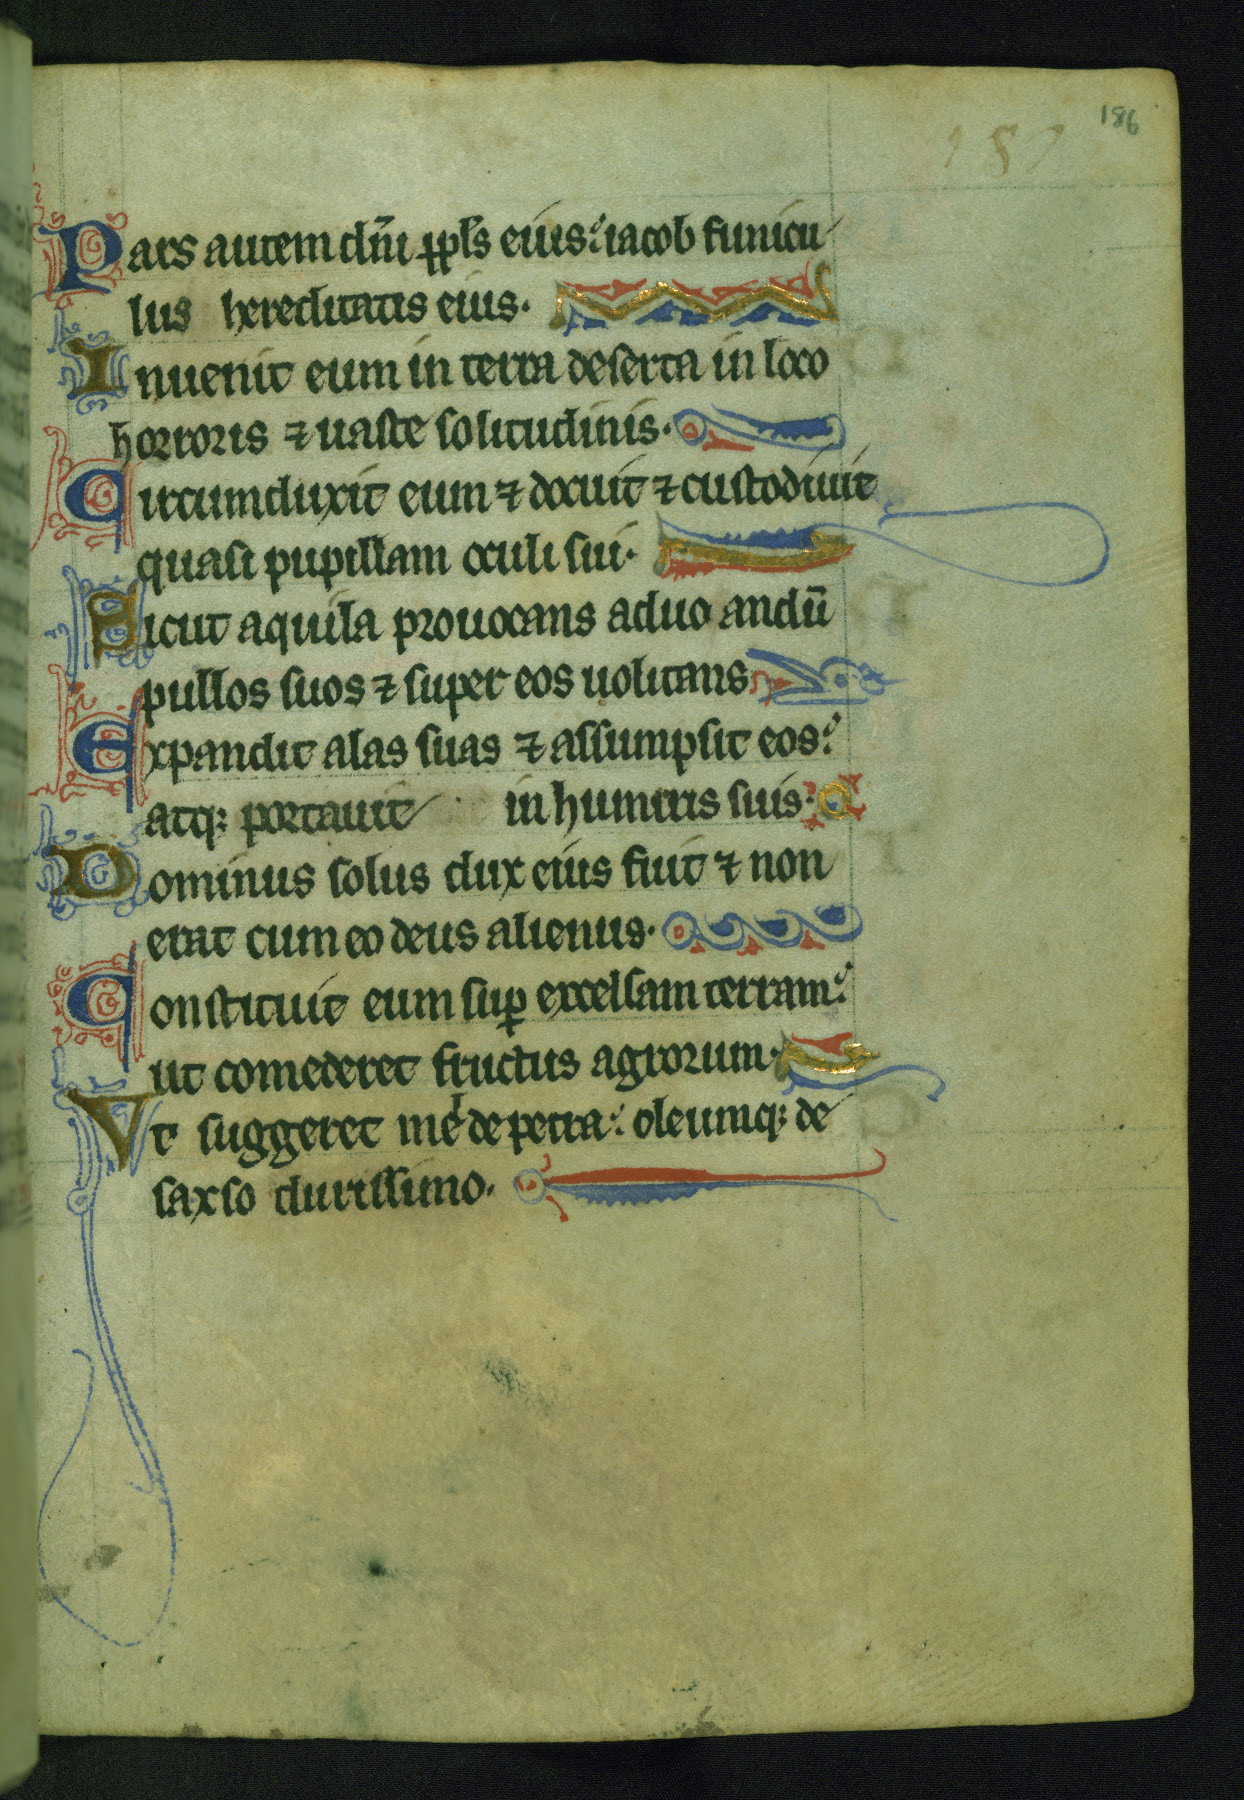 186
187
Pars autem dñi ppls eius: iacob funicu
lus hereditatis eius.
Inuenit eum in terra deserta in loco
horroris ⁊ uaste solitudinis.
Circumduxit eum ⁊ docuit ⁊ custodiuit
quasi pupillam oculi sui.
Sicut aquila prouocans aduo andū
pullos suos ⁊ super eos uolitans
Expandit alas suas ⁊ assumpsit eos:
atq; portauit in humeris suis.
Dominus solus dux eius fuit ⁊ non
erat cum eo deus alienus.
Constituit eum sup̱ excelsam terram:
ut comederet fructus agrorum.
Vt suggeret mel de petra: oleumq; de
saxso durissimo.